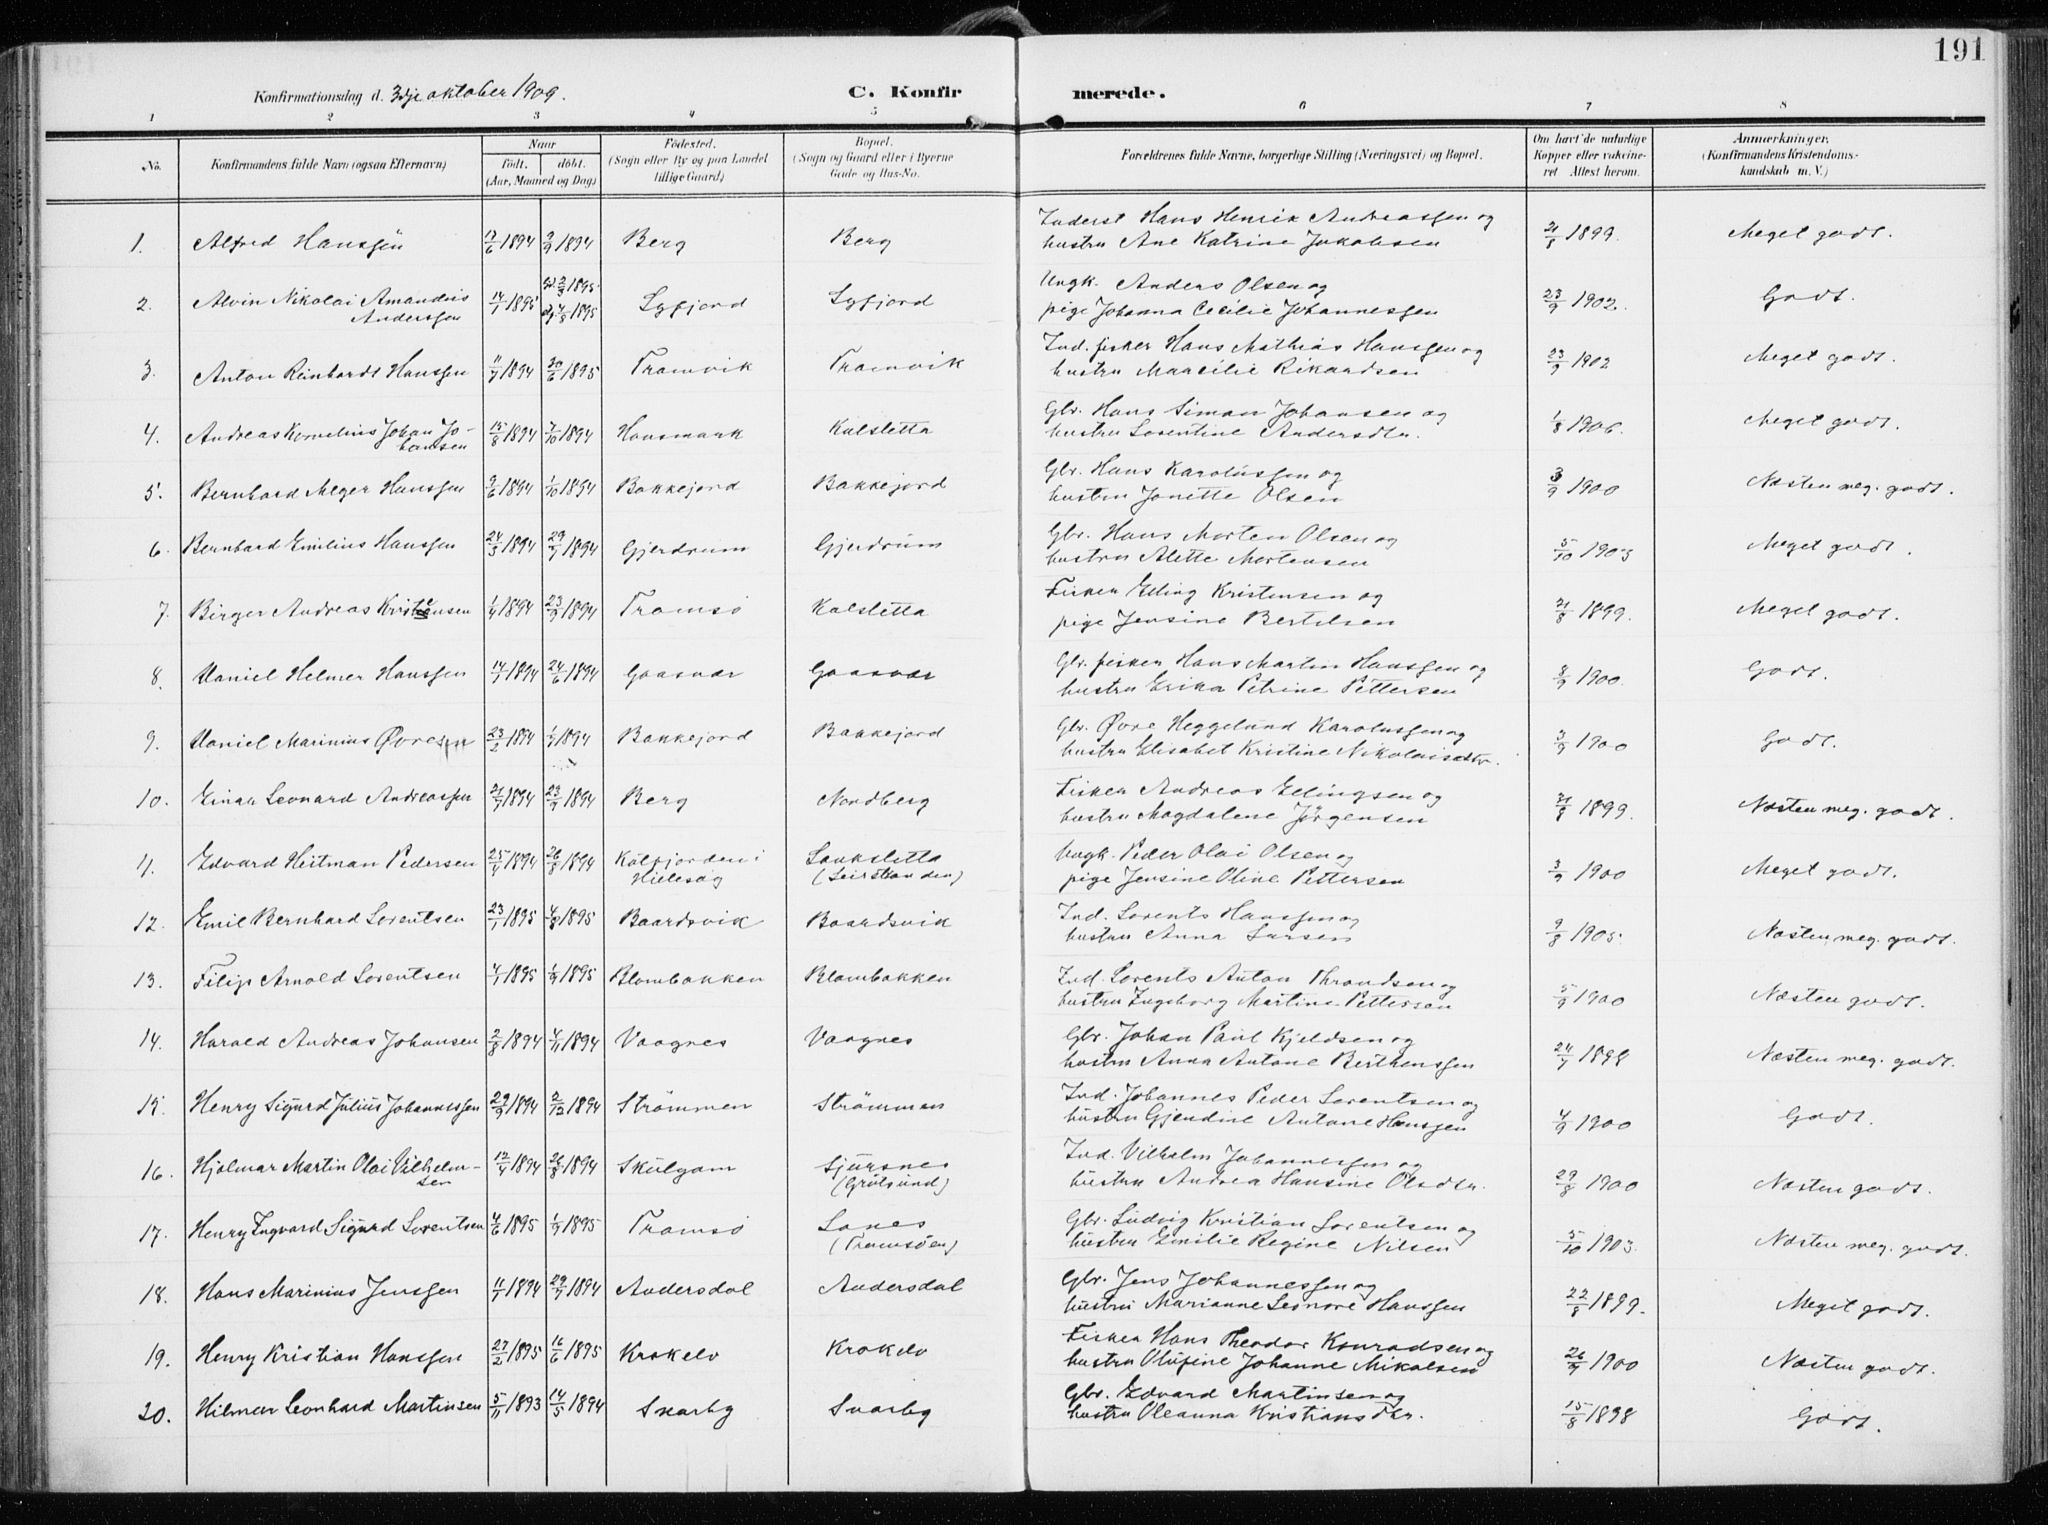 191
Konfirmationsdag d. 3dje oktober 1909.
C. Konfir merede.
1 2 3 4 5 6 7 8
No.
Konfirmandens fulde Navn (ogsaa Efternavn)
Naar
födt. döbt.
(Aar, Maaned og Dag)
Födested.
(Sogn eller By og paa Landet
tillige Gaard)
Bopæl.
(Sogn og Gaard eller i Byerne
Gade og Hus-No.
Forældrenes fulde Navne, borgerlige Stilling (Næringsvei) og Bopæl.
Om havt de naturlige
Kopper eller vakcine-
ret Attest herom.
Anmærkninger,
(Konfirmandens Kristendoms-
kundskab m. V.)
1. Alfred Hanssen 17/6 1894 2/9 1894 Berg Berg Inderst Hans Henrik Andreassen og
hustru Ane Katrine Jakobsen 21/8 1899. Meget godt.
2. Alvin Nikolai Amandus
Anderssen 14/1 1895 1895 4/8 1895 Lyfjord Lyfjord Ungk. Anders Olsen og
pige Johanna Cecilie Johannessen 23/9 1902. Godt.
3. Anton Reinhardt Hanssen 11/7 1894 30/6 1895 Tromvik Tromvik Ind. fisker Hans Mathias Hanssen og
hustru Marcilie Rikardsen 23/9 1902 Meget godt.
4. Andreas Kornelius Johan Jo-
hansen 15/8 1894 7/10 1894 Hansmark Kalsletta Gbr. Hans Simon Johansen og
hustru Lorentine Andersdtr. 1/8 1906. Meget godt.
5. Bernhard Meyer Hanssen 9/6 1894 1/10 1894 Bakkejord Bakkejord Gbr. Hans Karolussen og
hustru Jonette Olsen 3/9 1900 Næsten meg. godt.
6. Bernhard Emilius Hanssen 24/3 1894 29/7 1894 Gjerdrum Gjerdrum Gbr. Hans Morten Olsen og
hustru Alette Mortensen 5/10 1903 Meget godt.
7. Birger Andreas Kristensen 1/4 1894 23/9 1894 Tromsö Kalsletta Fisker Eling Kristensen og
pige Jensine Bertelsen 21/8 1899. Meget godt.
8. Daniel Helmer Hanssen 14/1 1894 24/6 1894 Gaasvær Gaasvær Gbr. fisker Hans Martin Hanssen og
hustru Erika Petrine Pettersen 8/9 1900. Godt.
9. Daniel Marinius Øvresen 23/2 1894 1/7 1894 Bakkejord Bakkejord Gbr. Øvre Heggelund Karolussen og
hustru Elisabet Kristine Nikolaisdtr. 3/9 1900 Godt.
10. Einar Leonard Andreassen 21/7 1894 23/9 1894 Berg Nordberg Fisker Andreas Elingsen og
hustru Magdalene Jörgensen 21/8 1899. Næsten meg. godt.
11. Edvard Heitman Pedersen 25/4 1894 26/8 1894 Kalfjorden i
Hillesøg Lanksletta
(Leirstranden) Ungk. Peder Olai Olsen og
pige Jensine Oline Pettersen 3/9 1900 Meget godt.
12. Emil Bernhard Lorentsen 23/1 1895 4/8 1895 Baardsvik Baardsvik Ind. Lorents Hanssen og
hustru Anna Larsen 9/8 1905. Næsten meg. godt.
13. Filip Arnold Lorentsen 4/1 1895 1/9 1895 Blombakken Blombakken Ind. Lorents Anton Throndsen og
hustru Ingeborg Martine Pettersen 5/9 1900 Næsten godt.
14. Harald Andreas Johansen 2/8 1894 4/11 1894 Vaagnes Vaagnes Gbr. Johan Paul Kjeldsen og
hustru Anna Antone Berthenssen 24/7 1898 Næsten meg. godt.
15. Henry Sigurd Julius Johannessen 29/9 1894 2/12 1894 Strömmen Strömmen Ind. Johannes Peder Lorentsen og
hustru Gjendine Antone Hanssen 4/9 1900 Godt.
16. Hjalmar Martin Olai Vilhelm-
sen 12/4 1894 26/8 1894 Skulgam Sjursnes
(Grötsund) Ind. Vilhelm Johannessen og
hustru Andrea Hansine Olsdtr. 29/8 1900 Næsten godt.
17. Henry Ingvard Sigurd Lorentsen 4/6 1895 1/9 1895 Tromsö Lanes
(Tromsöen) Gbr. Ludvig Kristian Lorentsen og
hustru Emilie Regine Nilsen 5/10 1903. Næsten meg. godt.
18. Hans Marinius Jenssen 11/1 1894 29/7 1894 Andersdal Andersdal Gbr. Jens Johannessen og
hustru Marianne Leonore Hanssen 22/8 1899. Meget godt.
19. Henry Kristian Hanssen 27/2 1895 16/6 1895 Krokelv Krokelv Fisker Hans Theodor Konradsen og
hustru Olufine Johanne Mikalsen 26/9 1900 Næsten godt.
20. Hilmar Leonhard Martinsen 5/11 1893 14/5 1894 Svarby Svarby Gbr. Edvard Martinsen og
hustru Oleanna Kristiansdtr. 15/8 1898 Godt.